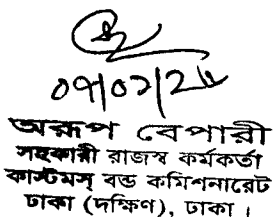 ০৭/০১/২৬
অরূপ বেপারী
সহকারী রাজস্ব কর্মকর্তা
কাস্টমস্ বন্ড কমিশনারেট
ঢাকা (দক্ষিণ), ঢাকা ।